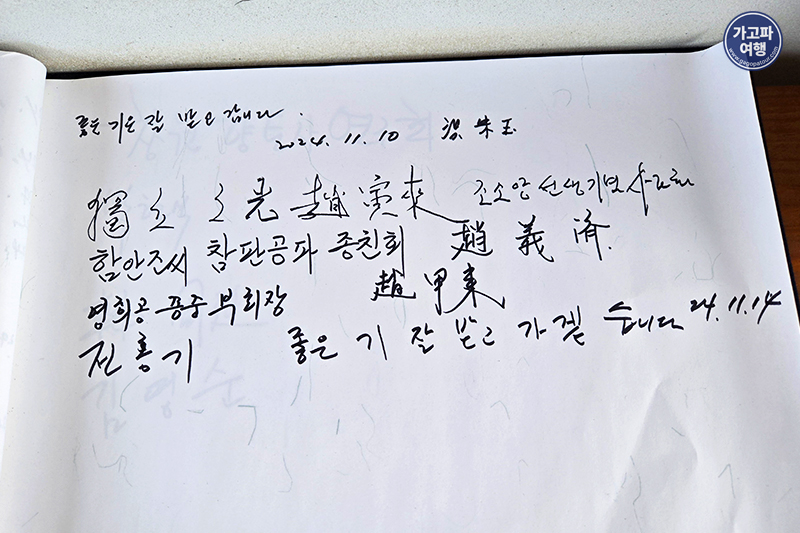 가고파
여행
www.gagopatour.com
좋은 기운 잘 받고 갑니다.
2024. 11. 10 梁 朱 玉
獨立之光 趙寅來 조소앙선생기념사업회
함안조씨 참판공파 종친회 趙 義 済.
명희공 종중 부회장 趙 甲來
전홍기 좋은 기 잘 받고 가겠습니다 24.11.14